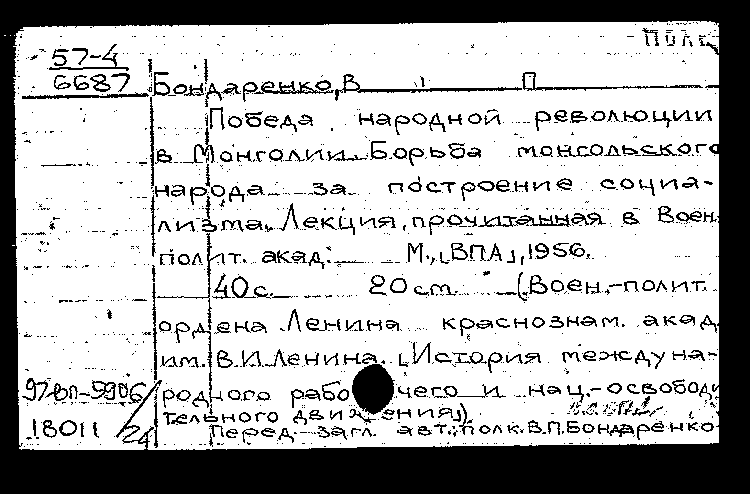 ПОЛК
57-4
6687
Бондаренко, В П
Победа народной революции
в Монголии. Борьба монгольского
народа за построение социа-
лизма. Лекция, прочитанная в Воен.
полит. акад. М., [ВПА], 1956.
40 с. 20 cm. (Воен.-полит.
ордена Ленина краснознам. акад.
им. В.И. Ленина. [История междуна-
97вп-5906 родного рабочего и нац.-освободи
тельного движения])
18011/24 Перед загл. авт.: полк. В.П. Бондаренко